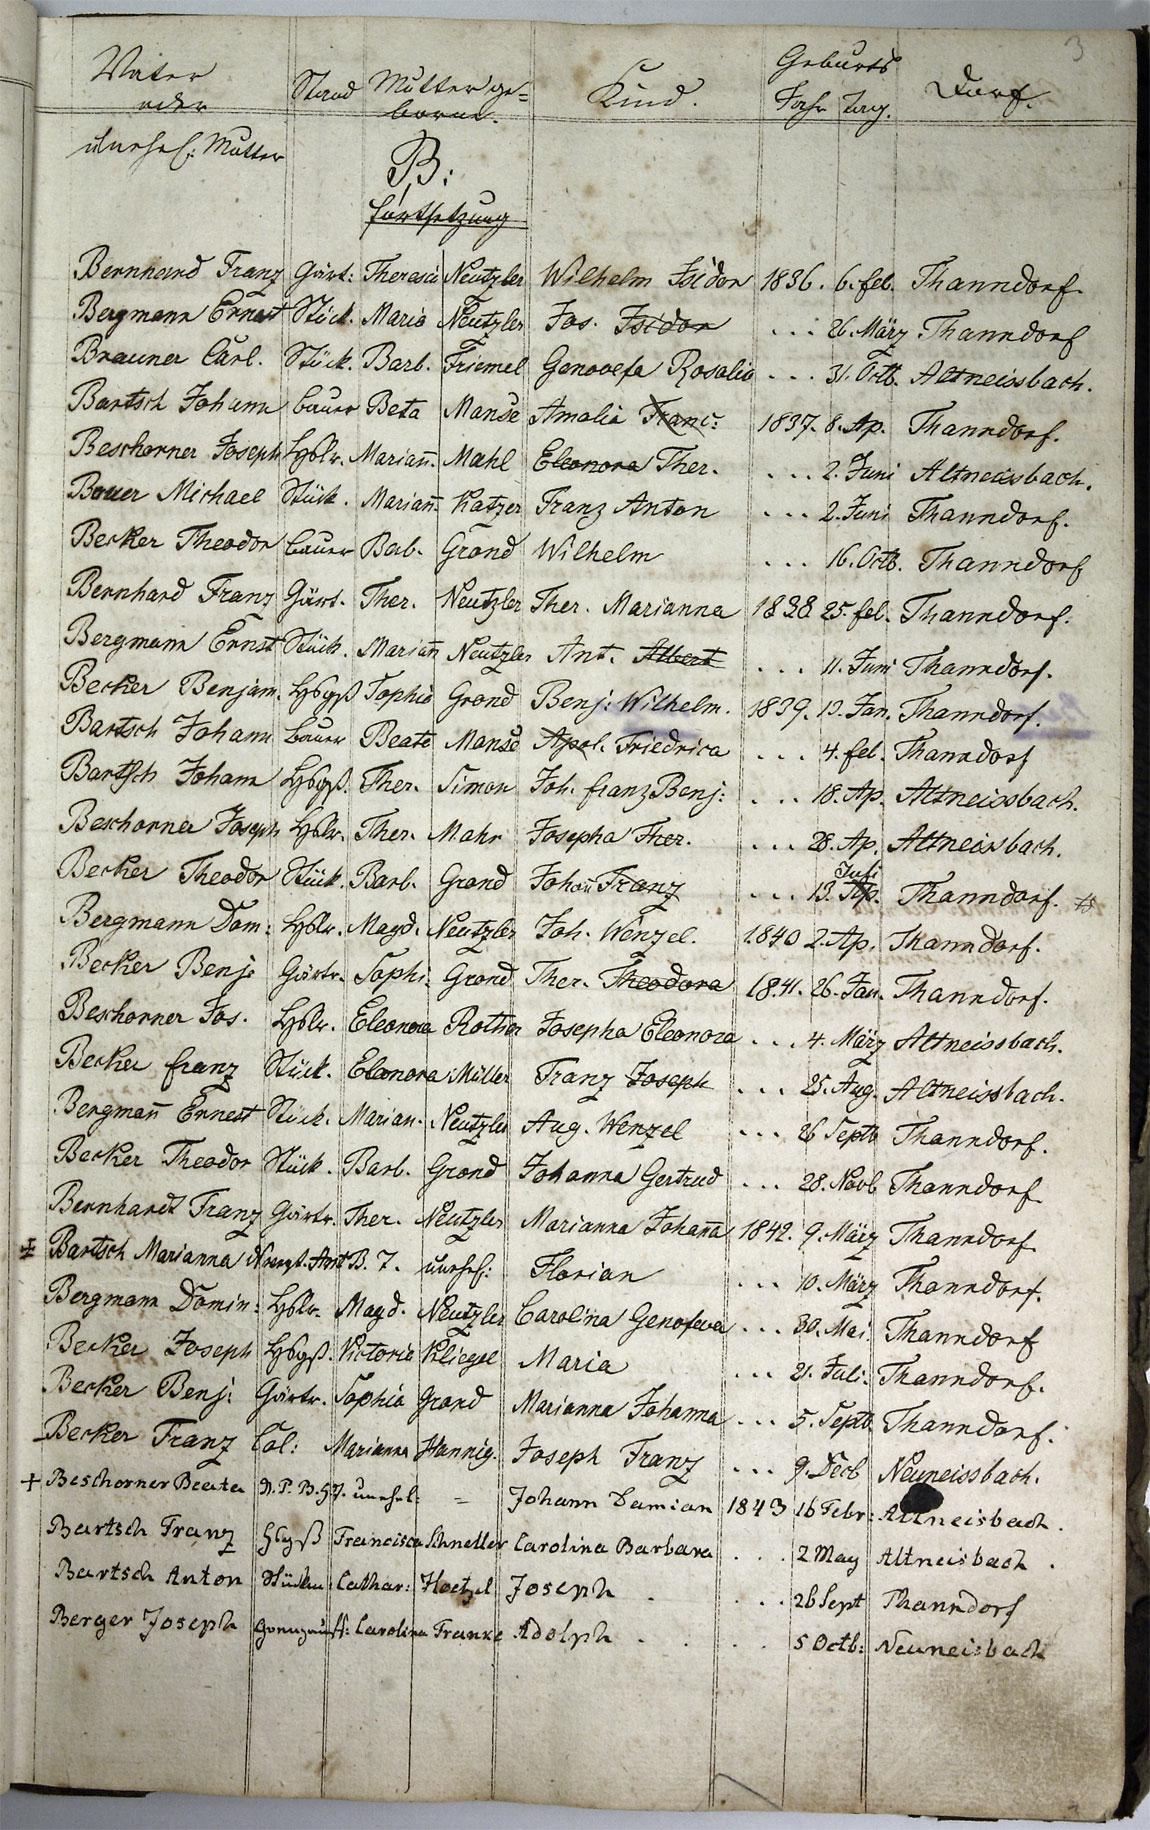 3
Vater oder unehel: Mutter | Stand | Mutter ge= borne. | Kind. | Geburts Jahr Tag. | Dorf.
B:
fortsetzung
Bernhard Franz Gärt: Theresia Neutzler Wilhelm Isidor 1836. 6. feb. Thanndorf.
Bergmann Ernest Stück. Maria Neutzler Jos. Isidor . . . 26. März Thanndorf
Brauner Carl. Stück. Barb. Friemel Genovefa Rosalia . . . 31. Octb. Altneissbach.
Bartsch Johann bauer Beta Manse Amalia Franc: 1837. 8. Ap. Thanndorf.
Beschorner Joseph Hslr. Mariañ. Mahl Eleonora Ther. . . . 2. Juni Altneissbach.
Bauer Michael Stück. Mariañ Katzer Franz Anton . . . 2. Juni Thanndorf.
Becker Theodor bauer Bab. Grond Wilhelm . . . 16. Octb. Thanndorf
Bernhard Franz Gärt. Ther. Neutzler Ther. Marianna 1838 25. feb. Thanndorf.
Bergmann Ernst Stück. Mariañ Neutzler Ant. Albert . . . 11. Juni Thanndorf.
Becker Benjam. Hsgß Sophia Grond Benj: Wilhelm. 1839. 13. Jan. Thanndorf.
Bartsch Johann bauer Beate Manse Apol. Friedrica . . . 4. feb. Thanndorf
Bartsch Johann Hsgß. Ther. Simon Joh. franz Benj: . . . 18. Ap. Altneissbach.
Beschorner Joseph Hslr. Ther. Mahr Josepha Ther. . . . 28. Ap. Altneissbach.
Becker Theodor Stück. Barb. Grond Johañ Franz . . . 13. Ap. Juli Thanndorf.
Bergmann Dom: Hslr. Magd. Neutzler Joh. Wenzel. 1840 2. Ap. Thanndorf.
Becker Benj: Gärtr. Sophi: Grond Ther. Theodora 1841. 26. Jan. Thanndorf.
Beschorner Jos. Hslr. Eleonora Rother Josepha Eleonora . . . 4. März Altneissbach.
Becker franz Stück. Eleonora Müller Franz Joseph . . . 25. Aug. Altneissbach.
Bergmañ Ernest Stück. Marian. Neutzler Aug. Wenzel . . . 26 Septb Thanndorf.
Becker Theodor Stück. Barb. Grond Johanna Gertrud . . . 28. Novb Thanndorf.
Bernhardt Franz Gärtr. Ther. Neutzler Marianna Johaña 1842. 9. März Thanndorf.
Bartsch Marianna B. 7. unehel: Florian . . . 10. März Thanndorf.
Bergmann Domin: Hslr. Magd. Neutzler Carolina Genofeva . . . 30. Mai Thanndorf
Becker Joseph Hsgß. Victoria Kliegel Maria . . . 21. Juli. Thanndorf.
Becker Benj: Gärtr. Sophia Grond Marianna Johanna . . . 5. Septb. Thanndorf.
Becker Franz Col: Marianna Hannig. Joseph Franz . . . 9. Decb Neuneissbach.
+ Beschorner Beata unehel: = Johann Damian 1843 16 Febr: Altneisbach.
Bartsch Franz Hsgß Francisca Schneller Carolina Barbara . . . 2 May Altneisbach.
Bartsch Anton Stückm: Cathar: Hoetzel Joseph . . . 26 Sept Thanndorf
Berger Joseph Carolina Franke Adolph . . . 5 Octb: Neuneisbach